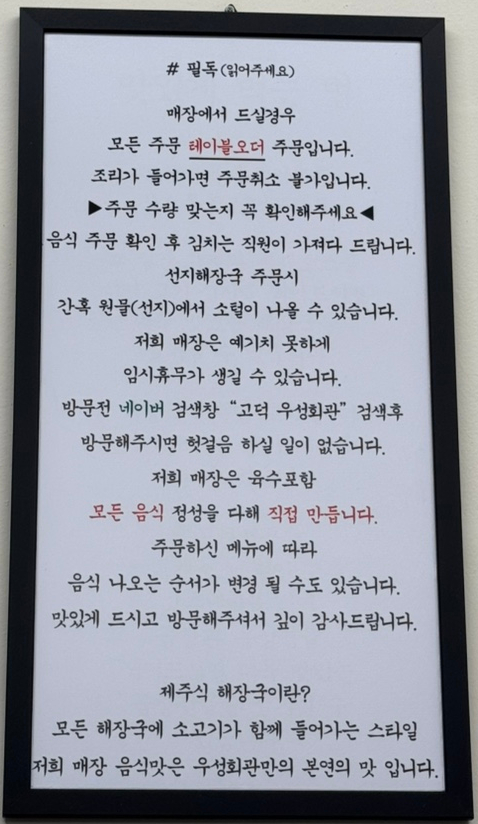 # 필독(읽어주세요)
매장에서 드실경우
모든 주문 테이블오더 주문입니다.
조리가 들어가면 주문취소 불가입니다.
▶주문 수량 맞는지 꼭 확인해주세요◀
음식 주문 확인 후 김치는 직원이 가져다 드립니다.
선지해장국 주문시
간혹 원물(선지)에서 소털이 나올 수 있습니다.
저희 매장은 예기치 못하게
임시휴무가 생길 수 있습니다.
방문전 네이버 검색창 “고덕 우성회관” 검색후
방문해주시면 헛걸음 하실 일이 없습니다.
저희 매장은 육수포함
모든 음식 정성을 다해 직접 만듭니다.
주문하신 메뉴에 따라
음식 나오는 순서가 변경 될 수도 있습니다.
맛있게 드시고 방문해주셔서 깊이 감사드립니다.
제주식 해장국이란?
모든 해장국에 소고기가 함께 들어가는 스타일
저희 매장 음식맛은 우성회관만의 본연의 맛 입니다.